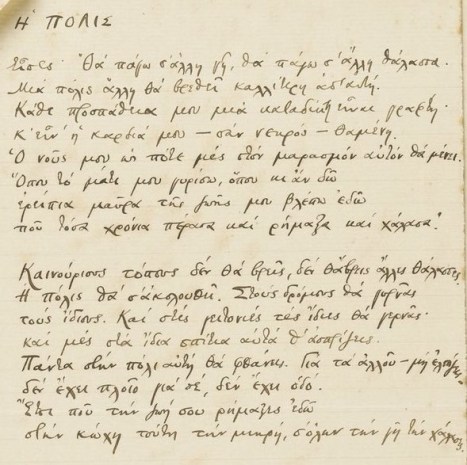 Η ΠΟΛΙΣ
Είπες· "Θα πάγω σ' άλλη γη, θα πάγω σ' άλλη θάλασσα.
Μια πόλις άλλη θα βρεθεί καλλίτερη από αυτή.
Κάθε προσπάθεια μου μια καταδίκη είναι γραφτή·
κ' είν' η καρδιά μου — σαν νεκρός — θαμένη.
Ο νους μου ως πότε μες στον μαρασμόν αυτόν θα μένει.
Όπου το μάτι μου γυρίσω, όπου κι αν δω
ερείπια μαύρα της ζωής μου βλέπω εδώ
που τόσα χρόνια πέρασα και ρήμαξα και χάλασα"
Καινούριους τόπους δεν θα βρεις, δεν θάβρεις άλλες θάλασσες.
Η πόλις θα σ' ακολουθεί. Στους δρόμους θα γυρνάς
τους ίδιους. Και στες γειτονιές τες ίδιες θα γερνάς·
και μες στα ίδια σπίτια αυτά θ' ασπρίζεις.
Πάντα στην πόλι αυτή θα φθάνεις. Για τα αλλού — μη ελπίζεις —
δεν έχει πλοίο για σε, δεν έχει οδό.
Έτσι που την ζωή σου ρήμαξες εδώ
στην κώχη τούτη την μικρή, σ' όλην την γη την χάλασες.